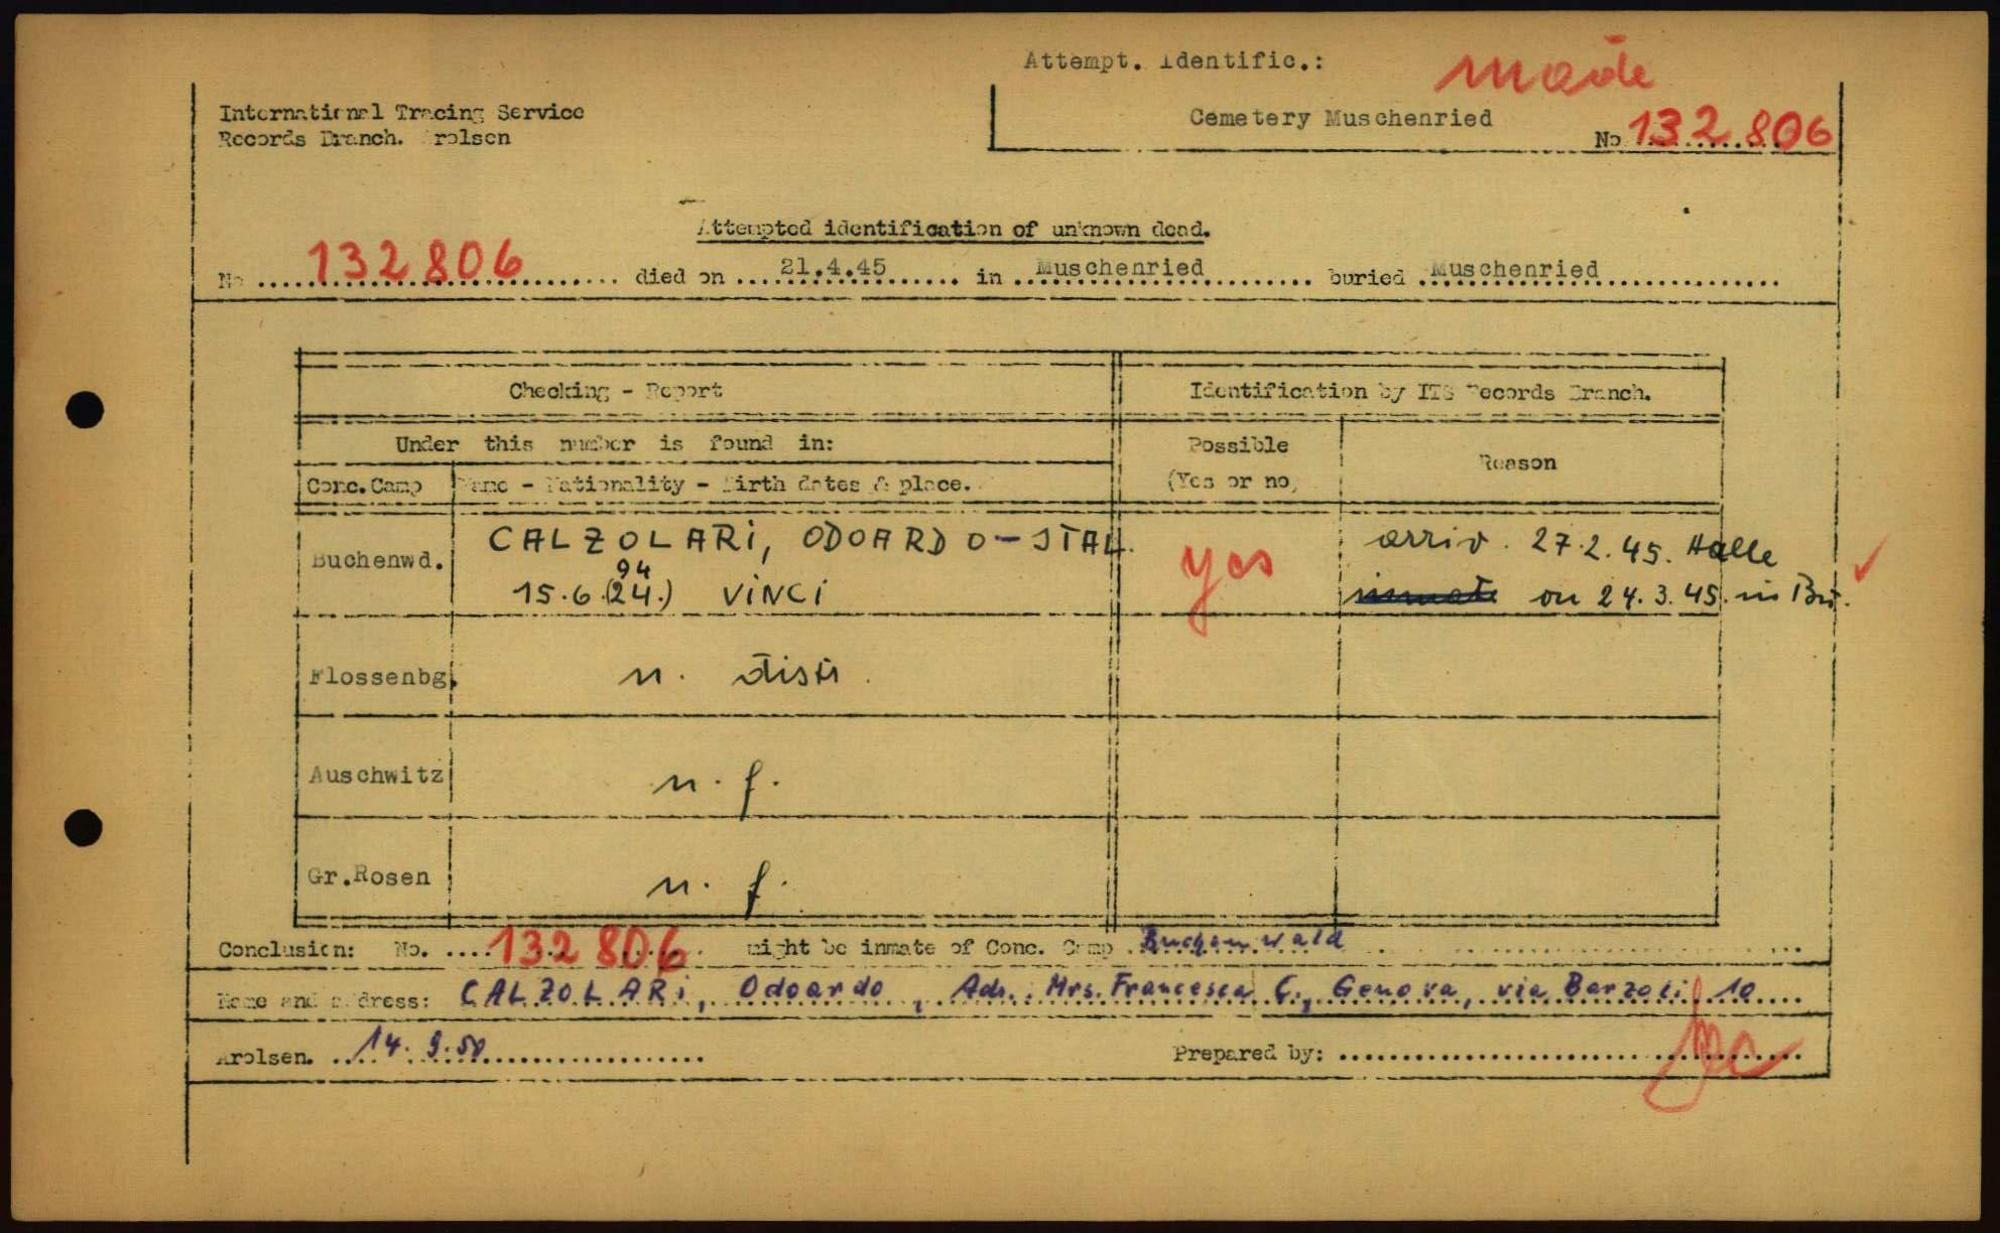 Attempt. Identific.: made
International Tracing Service
Records Branch. Arolsen
Cemetery Muschenried
No 132806
Attempted identification of unknown dead.
No ....132806.... died on ....21.4.45.... in ....Muschenried.... buried ....Muschenried....
Checking - Report
Identification by ITS Records Branch.
Under this number is found in:
Possible
(Yes or no)
Reason
Conc.Camp
Name - Nationality - Birth dates & place.
Buchenwd.
CALZOLARI, ODOARDO - ITAL.
94
15.6.(24.) VINCI
yes
arriv. 27.2.45. Halle
inmate on 24.3.45. in Bu.
Flossenbg.
n.
Auschwitz
n. f.
Gr.Rosen
n. f.
Conclusion: No. ....132806.... might be inmate of Conc. Camp Buchenwald
Name and address: CALZOLARI, Odoardo, Adr. Mrs. Francesca C., Genova, via Barzoli 10
Arolsen. 14.9.50
Prepared by: